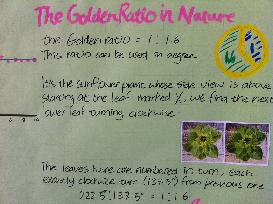 The Golden Ratio in Nature
the Golden ratio = 1 : 1.6
This ratio can be used in
It's the sunflower plant whose side view is above
starting at the leaf marked X, we find the next
over leaf turning clockwise
The leaves here are numbered in turn, each
exactly clockwise turn (137.5°) from previous one
222.5° : 137.5° = 1 : 1.6